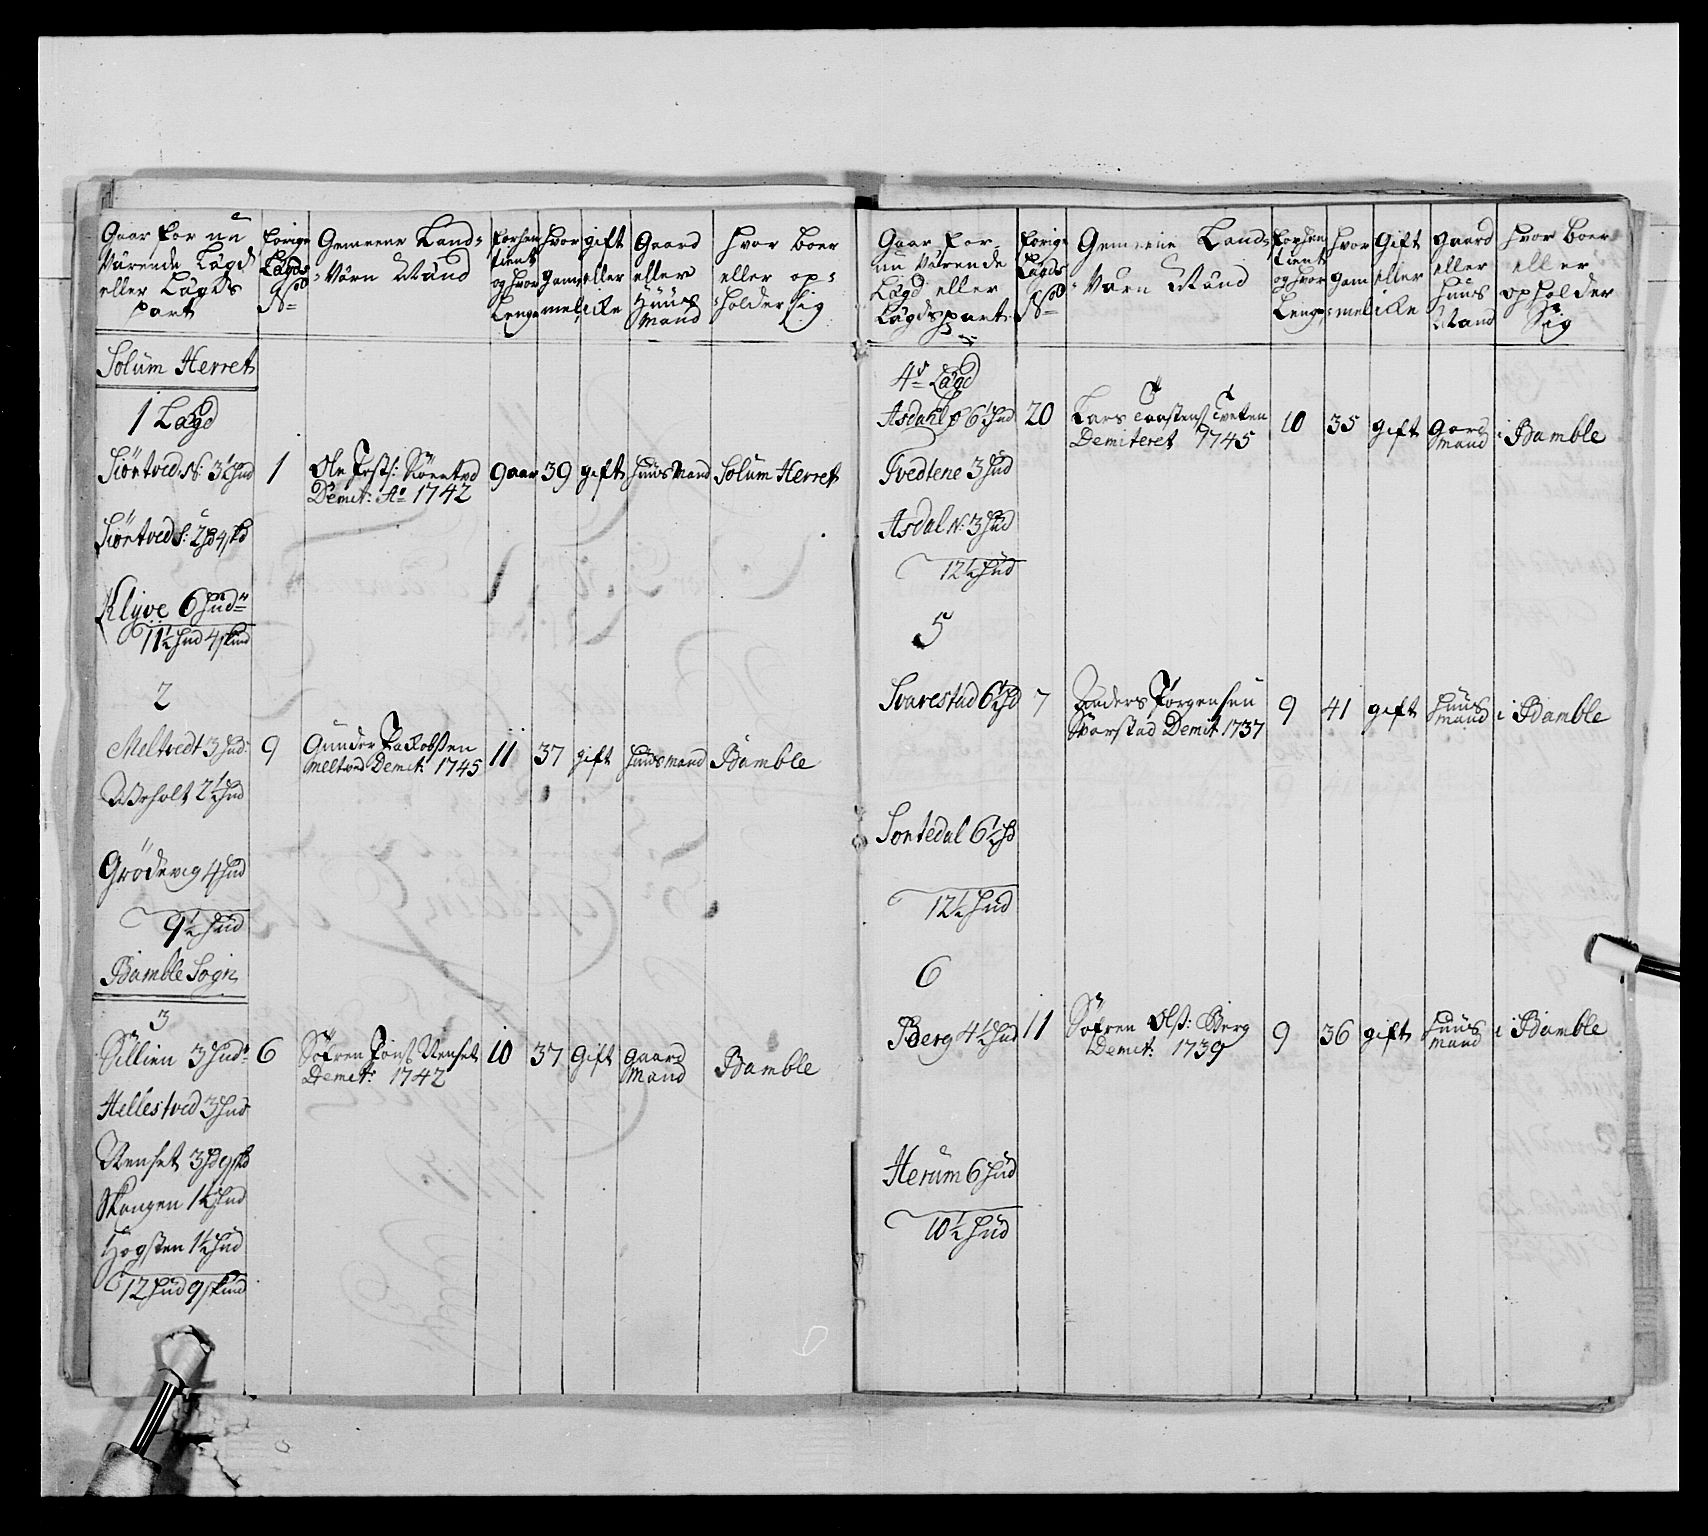 Gaar for nu
Värende Lägd
eller Lägds
part
Forige
Lägds
No
Gemeene Land=
=Värn Mänd
forhen
tient
og hvor
Lenge
hvor
gam=
mel,
gift
eller
icke
Gaard
eller
Huus
Mand
hvor boer
eller op=
=holder sig
Solum Herret
1 Lægd
Siörtved N: 3½ Hud
1
Ole
Demit: Ao 1742
9 aar
39
gift
huus Mand
Solum Herret
Siörtved S: 2 Hd 4 skd
Klyve 6 Huder
11½ Hud 4 skind
2
Meltvedt 3 Hud
9
Gunder Jacobsen
Meltved Demit: 1745
11
37
gift
huus mand
Bamble
Wrholt 2½ Hud
Grödevig 4 Hud
9½ Hud
Bamble Sogn
3
Sillien 3 Hudr
6
Söfren Jons Uenset
Demit: 1742
10
37
Gift
gaard
Mand
Bamble
Hellestved 3 Hud
Uenset 3 Hd 9 skd
Skougen 1½ Hud
Hogsten 1½ Hud
12 Hud 9 skind
Gaar for
nu Värende
Lägd eller
Lägdspart
Forige
Lägds
No
Gemeene Land
Värn Mänd
forhen
tient
og hvor
Lenge
hvor
gam
=mel
Gift
eller
icke
gaard
eller
huus
Mand
hvor boer
eller
opholder
Sig
4de Lägd
Asdahl S 6½ Hud
20
Lars Torstens Tveten
Demiteret 1745
10
35
gift
gard
mand
i Bamble
Tvedtene 3 Hud
Asdal N: 3 Hud
12½ Hud
5
Svarestad 6½ Hd
7
Anders Jörgensen
Svarstad Demit 1737
9
41
gift
huus
mand
i Bamble
Sontedal 6½ Hd
12½ Hud
6
Berg 4½ Hud
11
Söfren Ols: Berg
Demit: 1739
9
36
gift
huus
mand
i Bamble
Herum 6 Hud
10½ Hud